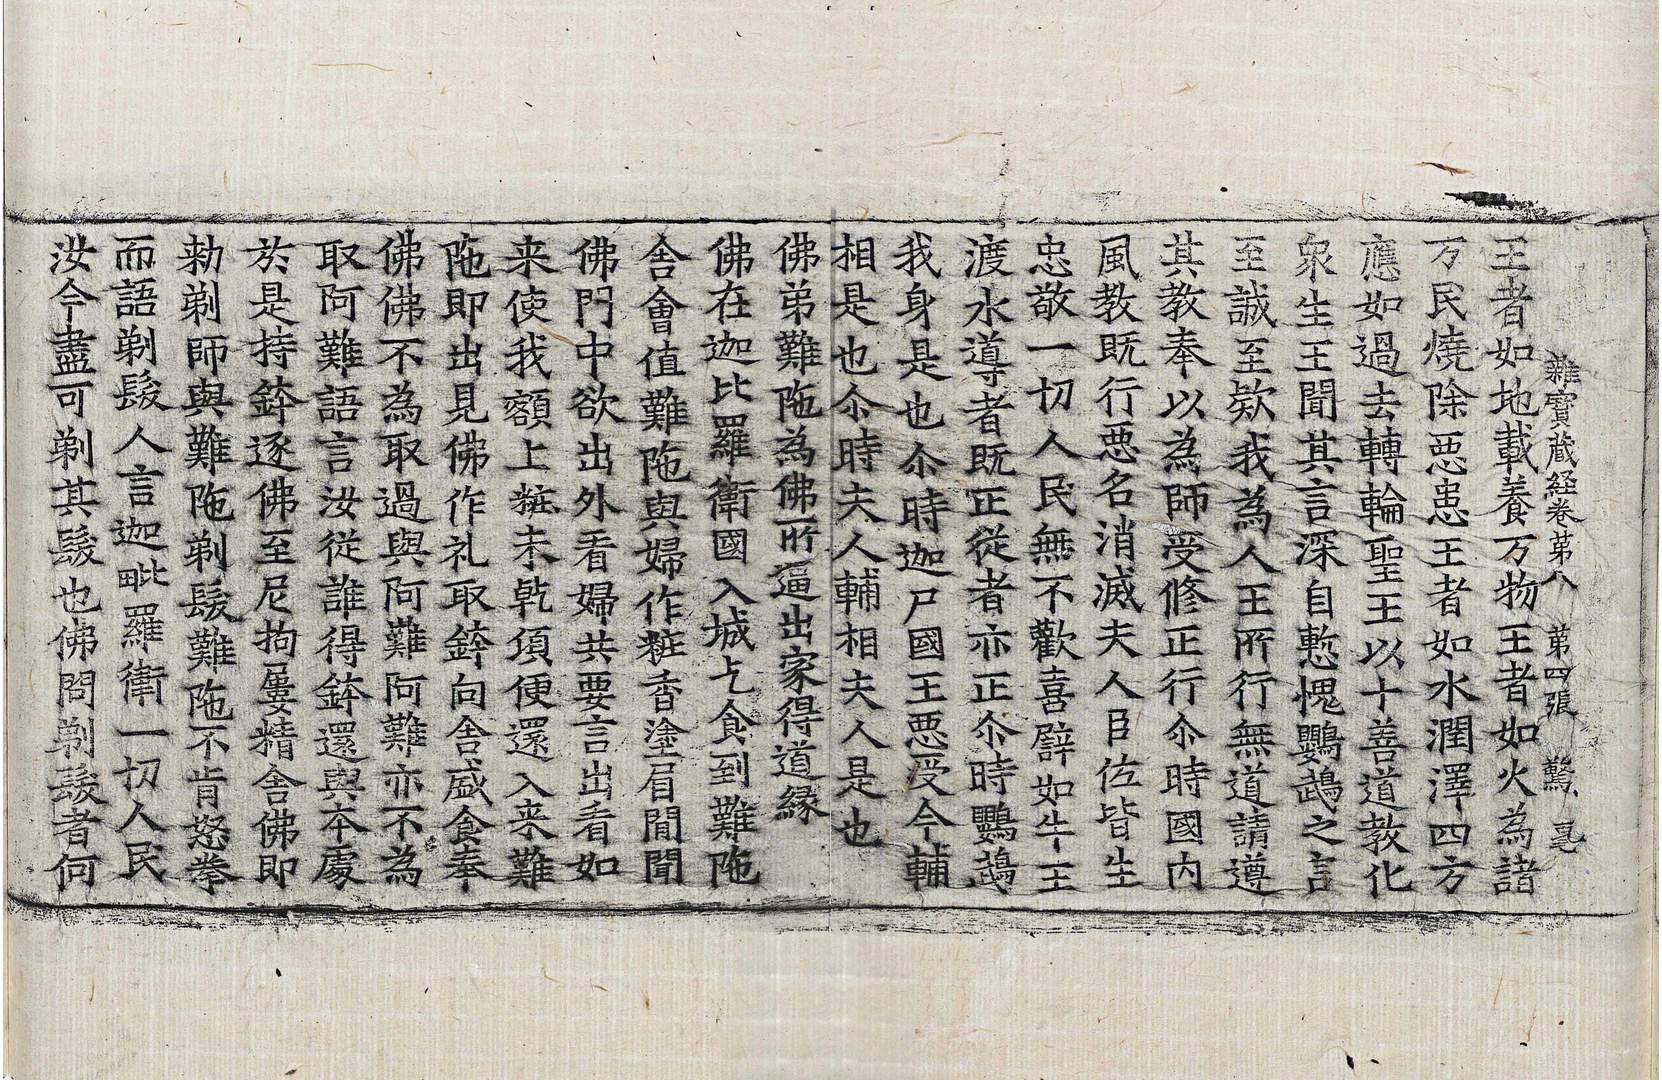 雜寶蔵経卷第八　第四張　驚
王者如地載養万物王者如火為諸
万民燒除惡患王者如水潤澤四方
應如過去轉輪聖王以十善道教化
衆生王聞其言深自慙愧鸚鵡之言
至誠至欵我為人王所行無道請遵
其教奉以為師受修正行尒時國内
風教既行惡名消滅夫人臣佐皆生
忠敬一切人民無不歡喜譬如牛王
渡水導者既正従者亦正尒時鸚鵡
我身是也尒時迦尸國王惡受今輔
相是也尒時夫人輔相夫人是也
佛弟難陁為佛所逼出家得道緣
佛在迦比羅衛國入城乞食到難陁
舍會值難陁與婦作粧香塗眉間聞
佛門中欲出外看婦共要言出看如
来使我額上粧未乾頃便還入来難
陁即出見佛作礼取鉢向舍盛食奉
佛佛不為取過與阿難阿難亦不為
取阿難語言汝従誰得鉢還與本處
於是持鉢逐佛至尼拘屢精舍佛即
勑剃師與難陁剃髮難陁不肯怒拳
而語剃髮人言迦毗羅衛一切人民
汝今盡可剃其髮也佛問剃髮者何